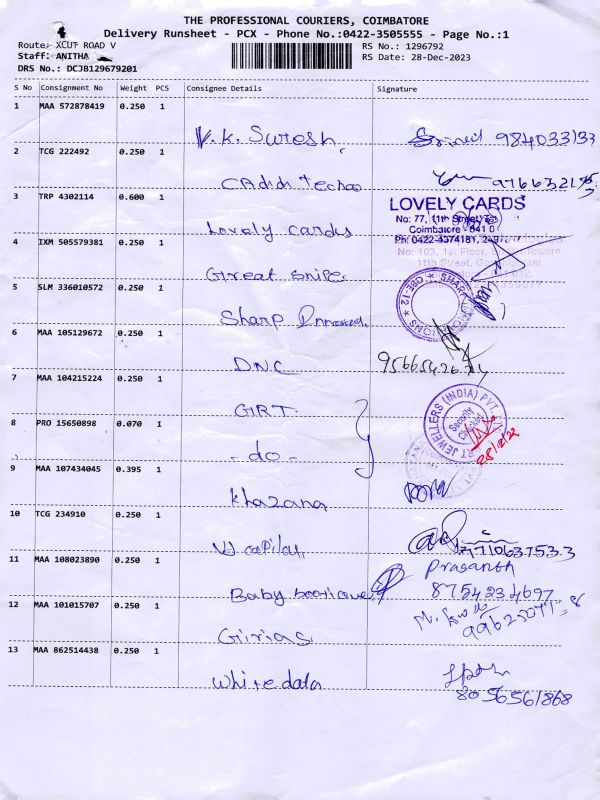 THE PROFESSIONAL COURIERS, COIMBATORE
Delivery Runsheet - PCX - Phone No.:0422-3505555 - Page No.:1
Route: XCUT ROAD V
RS No.: 1296792
Staff: ANITHA
RS Date: 28-Dec-2023
DRS No.: DCJB129679201
S No Consignment No Weight PCS Consignee Details Signature
1 MAA 572878419 0.250 1
V.K. Suresh.
2 TCG 222492 0.250 1
3 TRP 4302114 0.600 1
LOVELY CARDS
No: 77, (11th Street) Tat
Lovely cards
Coimbatore - 641 0
Ph: 0422-4374181,
4 IXM 505579381 0.250 1
No: 103, 1st Floor,
11th Street,
Great snipe
5 SLM 336010572 0.250 1
CBE-12 SHARP
Sharp
6 MAA 105129672 0.250 1
DNC
7 MAA 104215224 0.250 1
GRT
JEWELLERS (INDIA) PVT.
Security
8 PRO 15650898 0.070 1
- do -
9 MAA 107434045 0.395 1
Khazana
10 TCG 234910 0.250 1
11 MAA 108023890 0.250 1
Prasanth
Baby bootique
8754234697
12 MAA 101015707 0.250 1
Girias
13 MAA 862514438 0.250 1
White data
8056561868